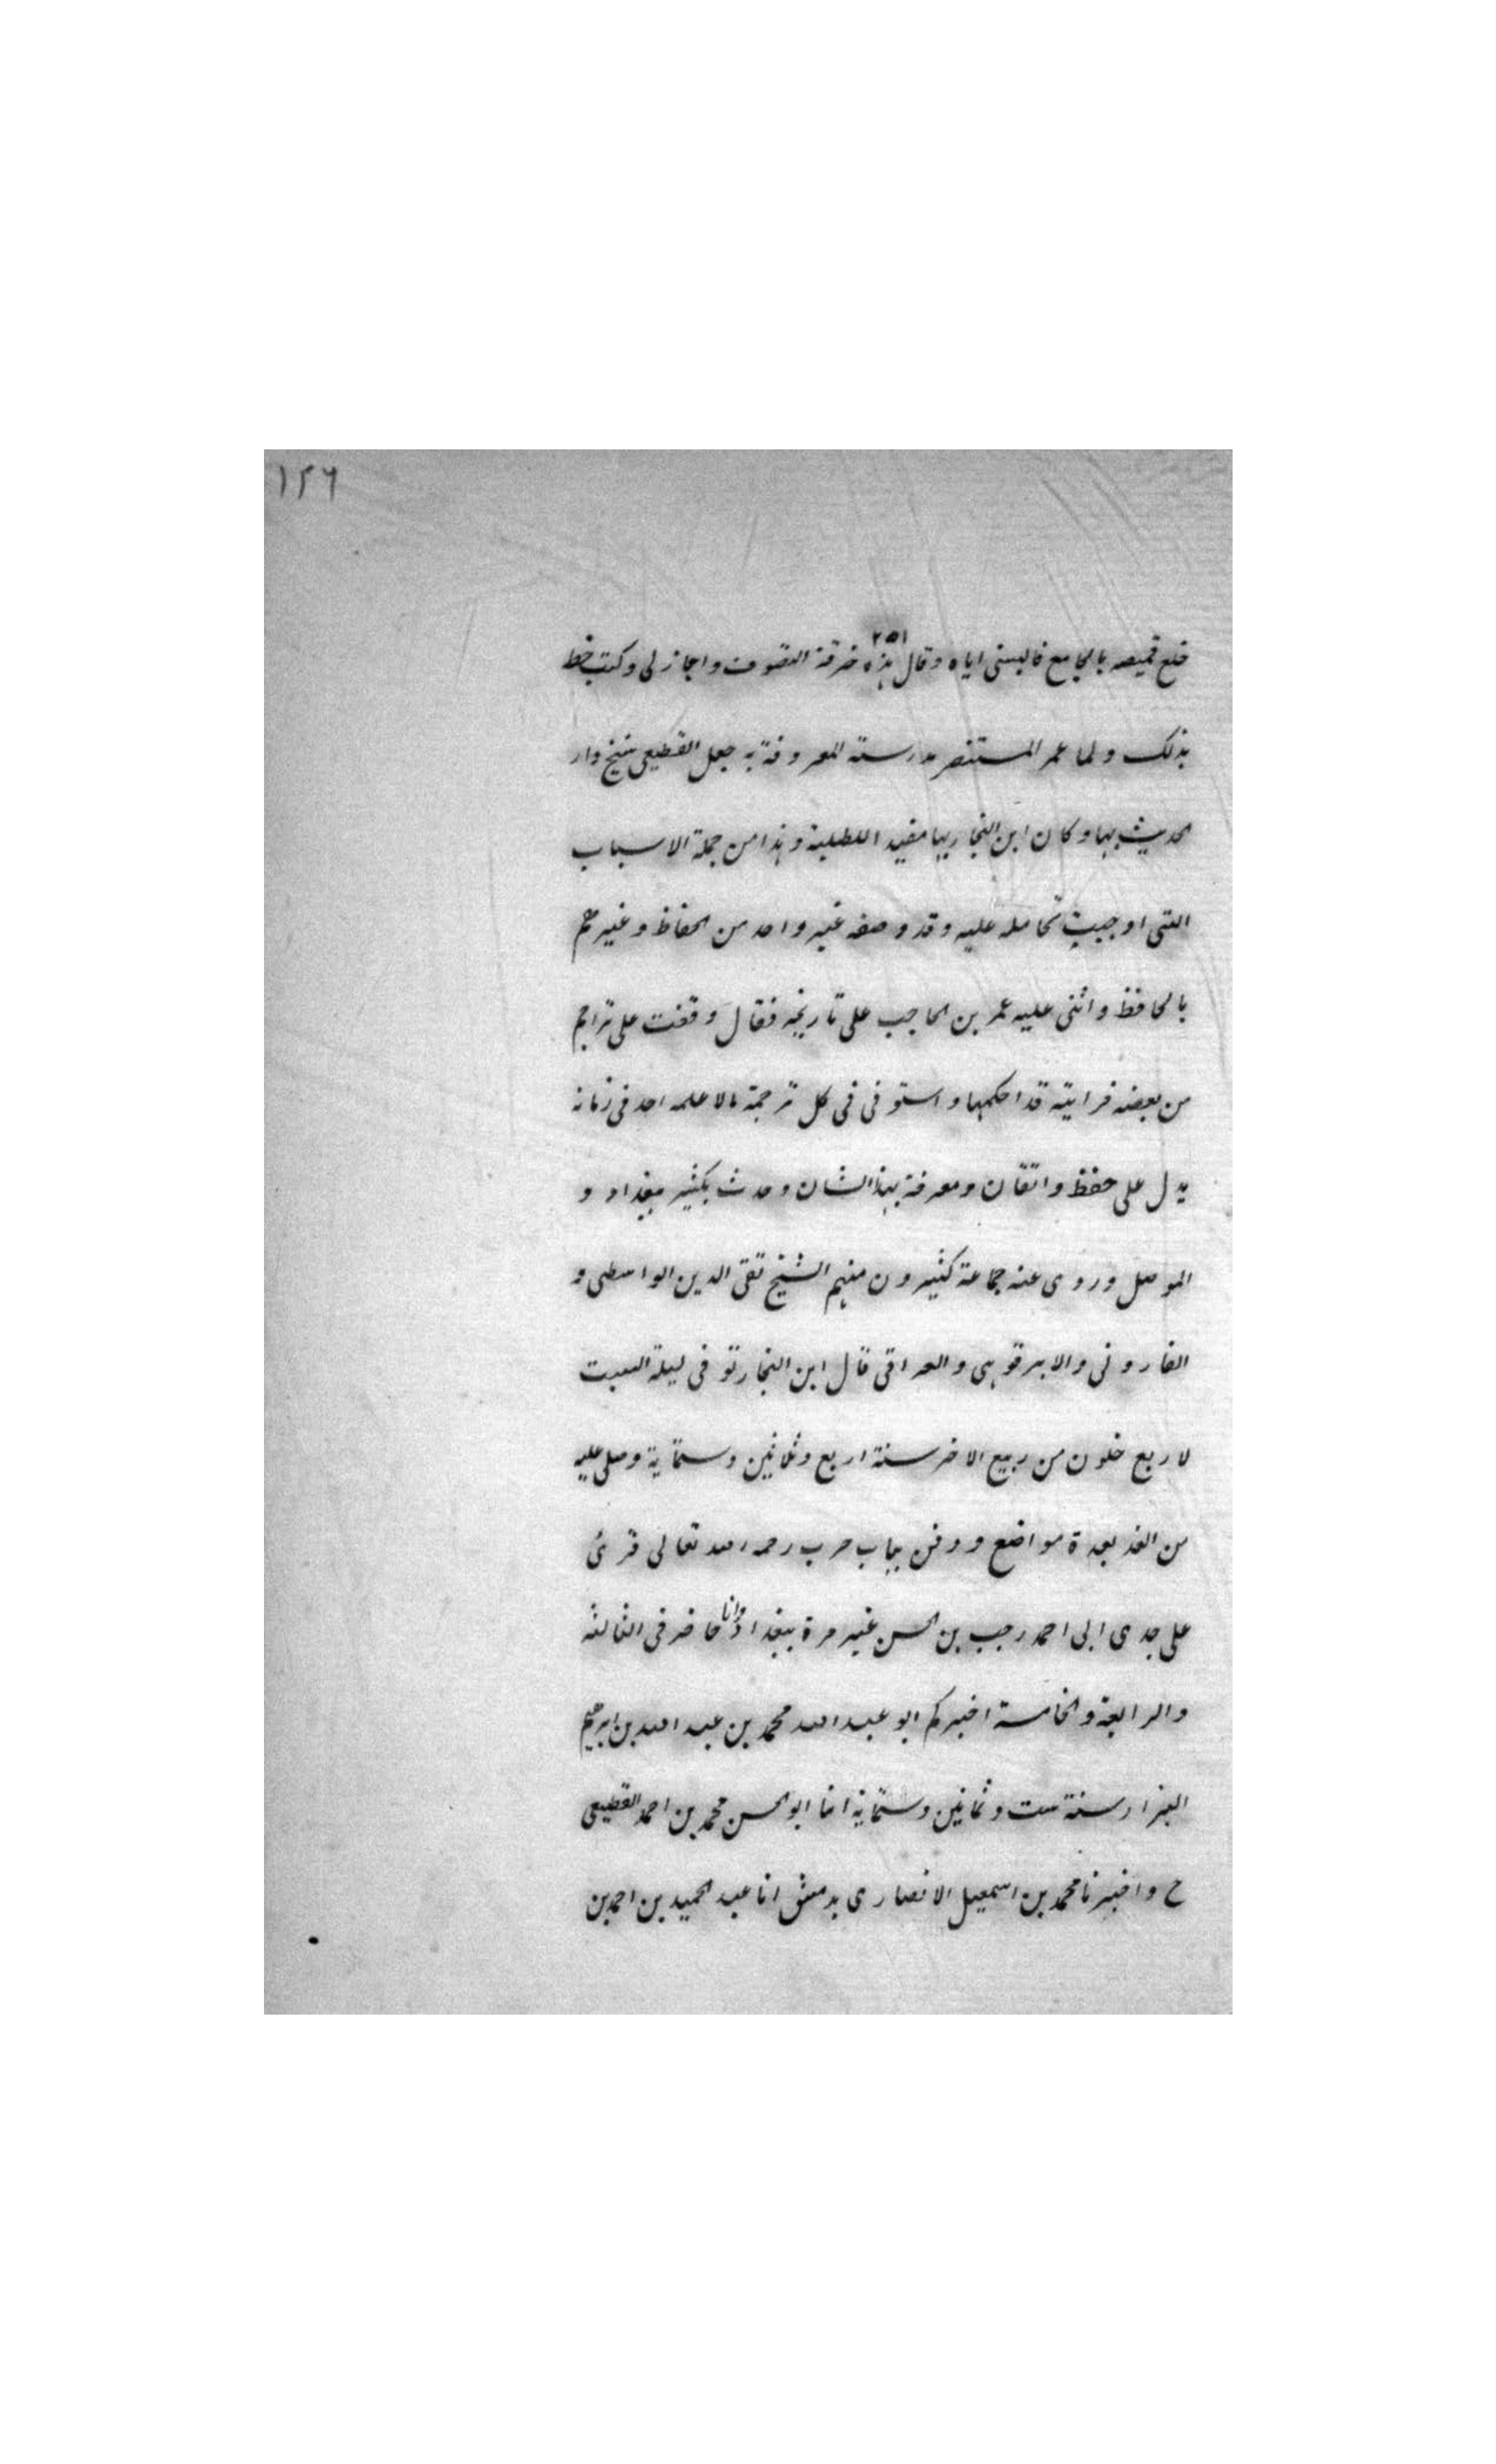 ١٢٦
٢٥١
خلع قميصه بالجامع فالبسنى اياه وقال هذه خرقة التصوف واجاز لى وكتب خط
بذلك ولما عمر المستنصر مدرسته المعروفة به جعل القطيعى شيخ دار
الحديث بها وكان ابن النجار بها مفيد اللطلبة وهذا من جملة الاسباب
التى اوجبت تحامله عليه وقد وصفه غير واحد من الحفاظ وغيرهم
بالحافظ واثنى عليه عمر بن الحاجب على تاريخه فقال وقفت على تراجم
من بعضه فرايته قد احكمها واستوفى فى كل ترجمة مالا علمه احد فى زمانه
يدل على حفظ واتقان ومعرفة بهذا الشان وحدث بكثير ببغداد و
الموصل وروى عنه جماعة كثيرون منهم الشيخ تقى الدين الواسطى و
الفاروثى والابرقوهى والعراقى قال ابن النجار توفى ليلة السبت
لاربع خلون من ربيع الاخر سنة اربع وثلاثين وستماية وصلى عليه
من الغد بعدة مواضع ودفن بباب حرب رحمه الله تعالى قرئ
على جدى ابى احمد رجب بن الحسن غير مرة ببغداد وانا حاضر فى الثالثة
والرابعة والخامسة اخبركم ابو عبد الله محمد بن عبد الله بن ابرهيم
البزار سنة ست وثمانين وستماية انا ابو الحسن محمد بن احمد القطيعى
ح واخبرنا محمد بن اسمعيل الانصارى بدمشق انا عبد الحميد بن احمد بن